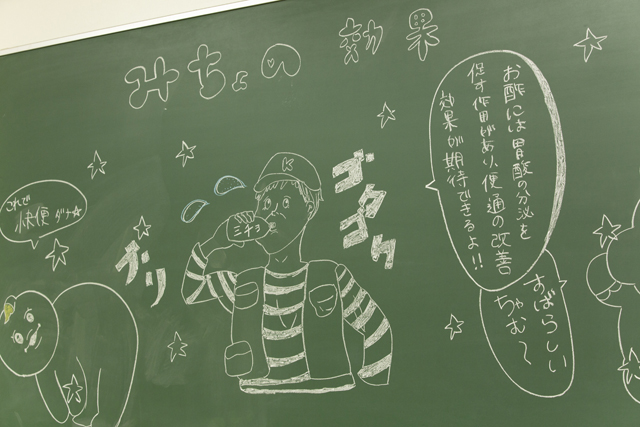 みちょの効果
お酢には胃酸の分泌を
促す作用があり、便通の改善
効果が期待できるよ!!
すばらしい
ちゃむ〜
K
ミチョ
ゴクゴク
これで
快便ダナ☆
ブリ